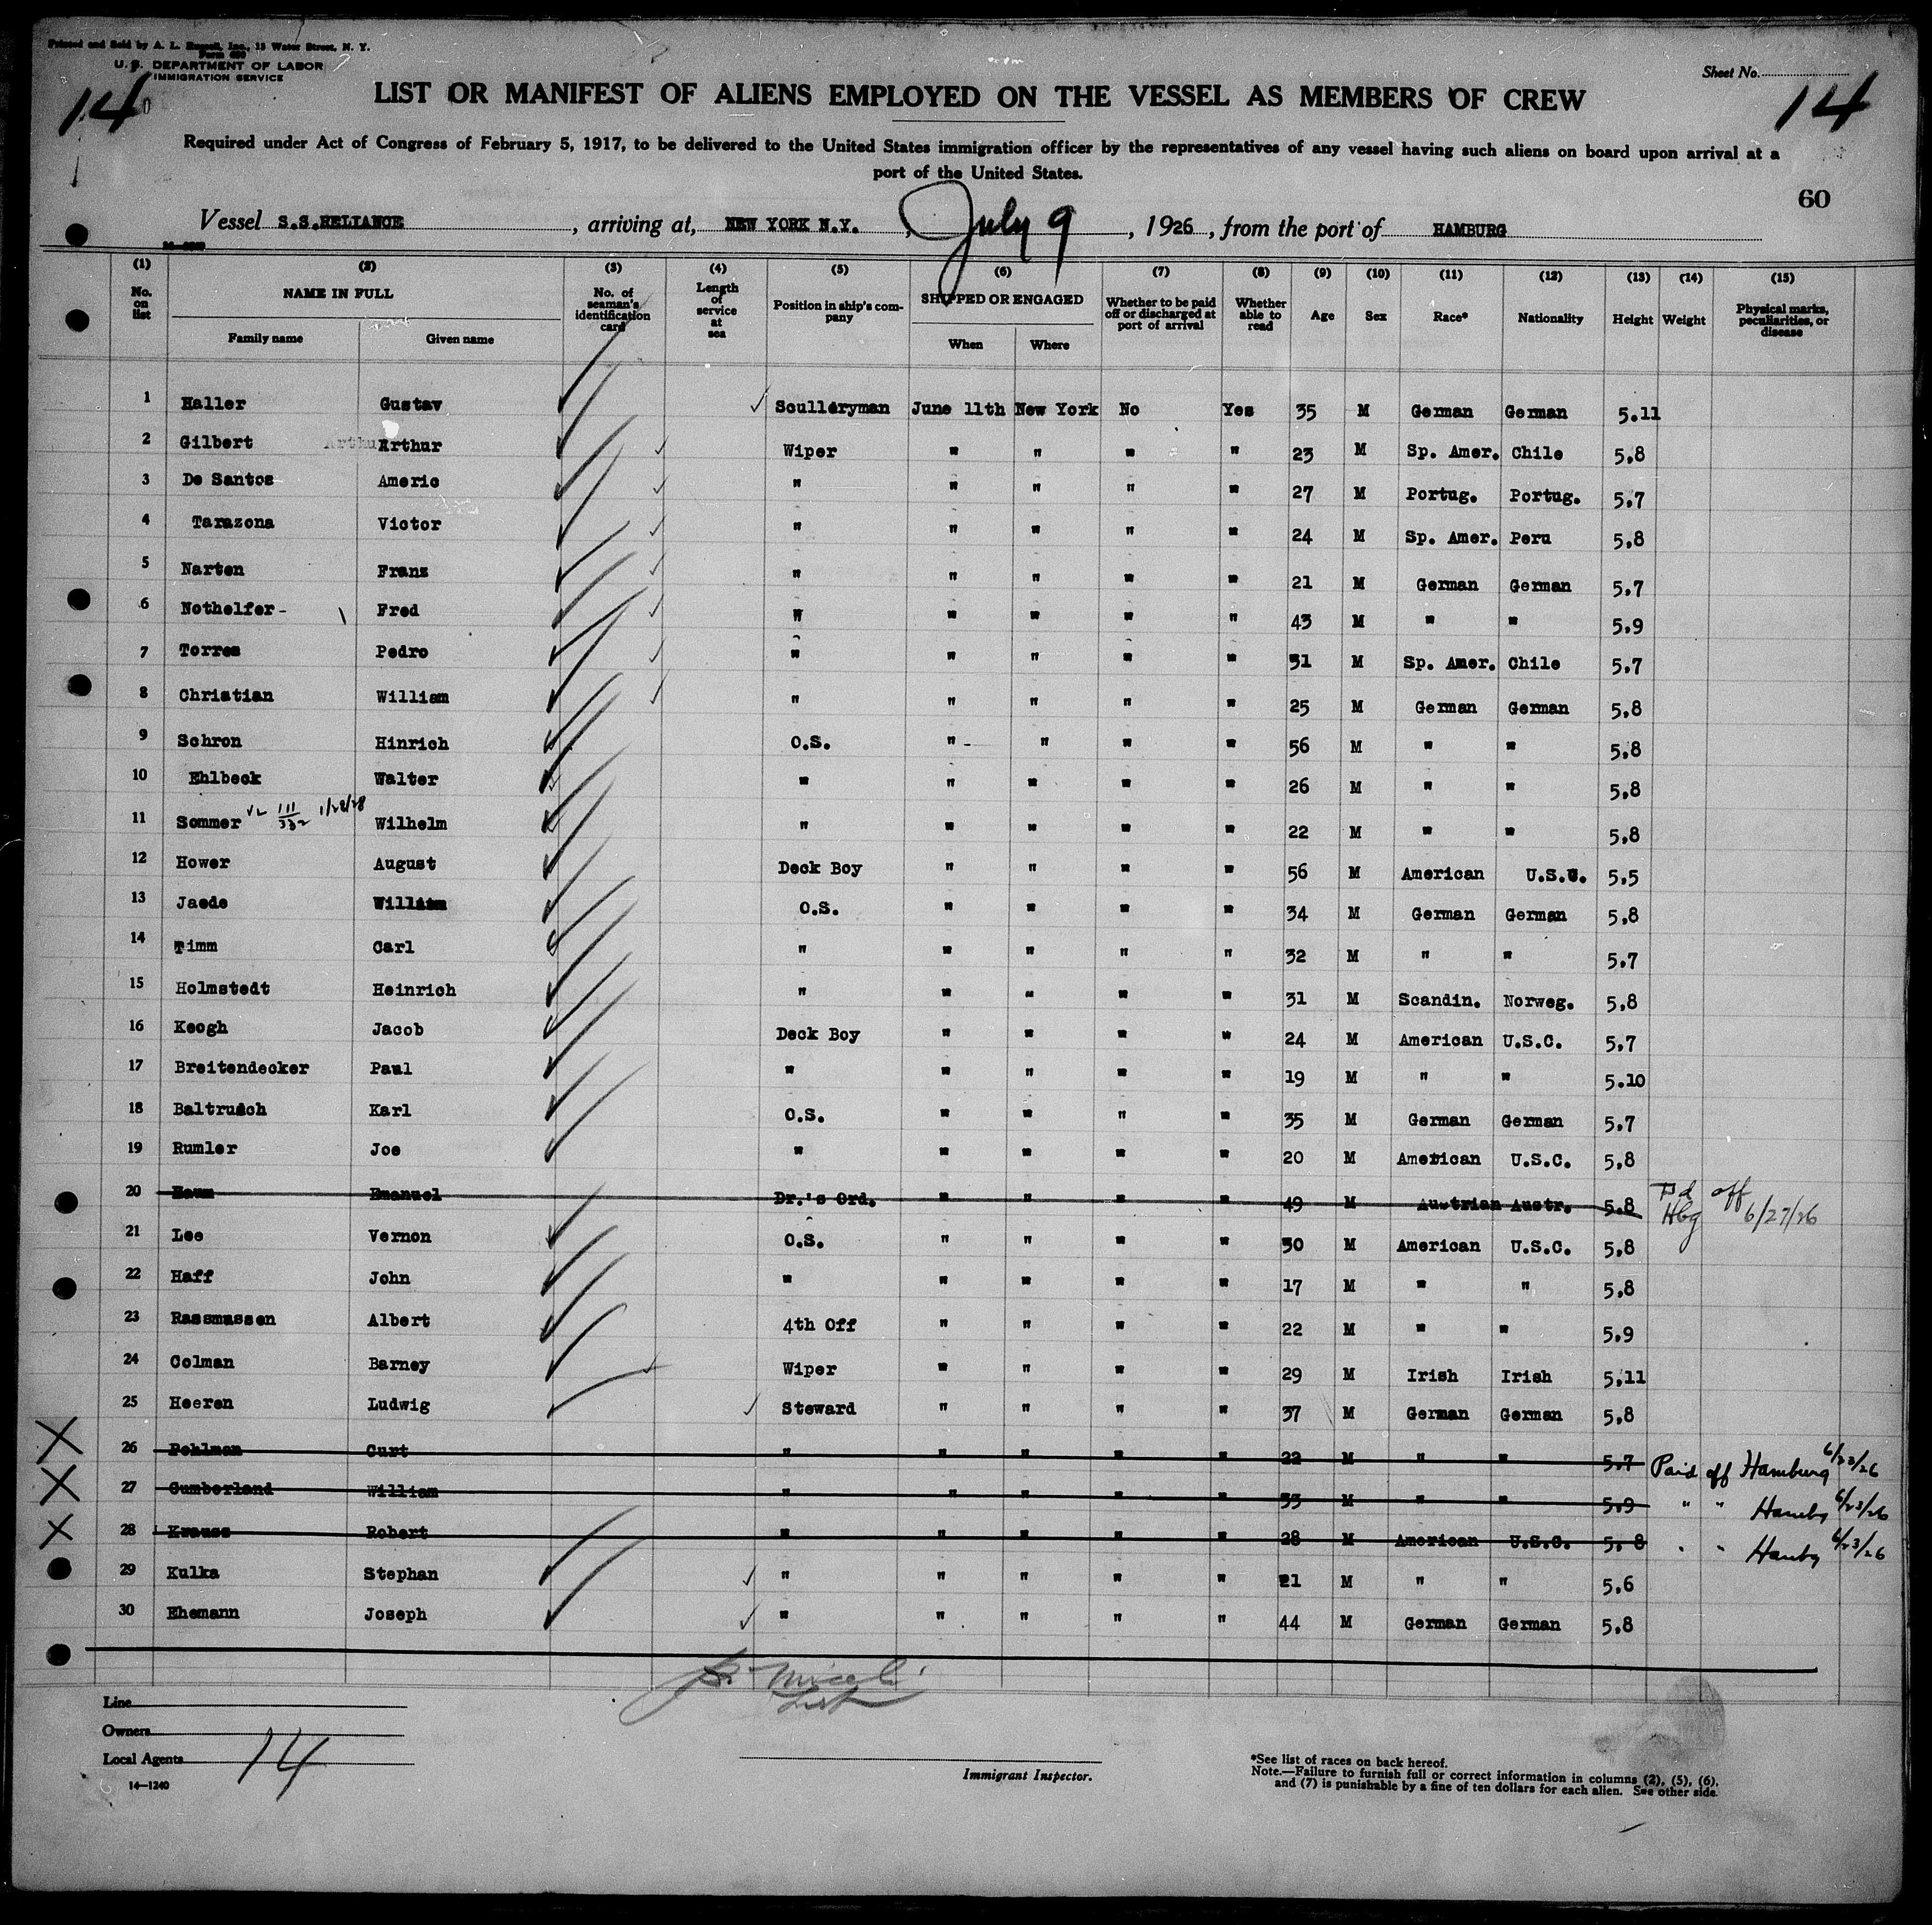 Printed and Sold by A. L. Russell, Inc., 13 Water Street, N. Y.
U. S. DEPARTMENT OF LABOR
IMMIGRATION SERVICE
Sheet No.
14 14
LIST OR MANIFEST OF ALIENS EMPLOYED ON THE VESSEL AS MEMBERS OF CREW
Required under Act of Congress of February 5, 1917, to be delivered to the United States immigration officer by the representatives of any vessel having such aliens on board upon arrival at a
port of the United States.
60
Vessel S.S.RELIANCE, arriving at, NEW YORK N.Y., July 9, 1926, from the port of HAMBURG
(1) (2) (3) (4) (5) (6) (7) (8) (9) (10) (11) (12) (13) (14) (15)
No. on list NAME IN FULL Family name Given name No. of seaman's identification card Length of service at sea Position in ship's company SHIPPED OR ENGAGED When Where Whether to be paid off or discharged at port of arrival Whether able to read Age Sex Race* Nationality Height Weight Physical marks, peculiarities, or disease
1 Haller Gustav Sculleryman June 11th New York No Yes 35 M German German 5.11
2 Gilbert Arthur Wiper " " " " 23 M Sp. Amer. Chile 5,8
3 De Santos Americ " " " " " 27 M Portug. Portug. 5,7
4 Tarazona Victor " " " " " 24 M Sp. Amer. Peru 5,8
5 Narten Franz " " " " " 21 M German German 5,7
6 Nothelfer- Fred " " " " " 43 M " " 5,9
7 Torres Pedro " " " " " 31 M Sp. Amer. Chile 5,7
8 Christian William " " " " " 25 M German German 5,8
9 Schron Hinrich O.S. " " " " 56 M " " 5,8
10 Ehlbeck Walter " " " " " 26 M " " 5,8
11 Sommer 111/332 1/28/28 Wilhelm " " " " " 22 M " " 5,8
12 Hower August Deck Boy " " " " 56 M American U.S.C. 5,5
13 Jaede William O.S. " " " " 34 M German German 5,8
14 Timm Carl " " " " " 32 M " " 5,7
15 Holmstedt Heinrich " " " " " 31 M Scandin. Norweg. 5,8
16 Keogh Jacob Deck Boy " " " " 24 M American U.S.C. 5,7
17 Breitendecker Paul " " " " " 19 M " " 5.10
18 Baltrusch Karl O.S. " " " " 35 M German German 5,7
19 Rumler Joe " " " " " 20 M American U.S.C. 5,8
20 Emanuel Dr.'s Ord. " " " " 49 M Austrian Austr. 5.8 Pd off Hbg 6/27/26
21 Lee Vernon O.S. " " " " 30 M American U.S.C. 5,8
22 Haff John " " " " " 17 M " " 5,8
23 Rassmussen Albert 4th Off " " " " 22 M " " 5,9
24 Colman Barney Wiper " " " " 29 M Irish Irish 5,11
25 Heeren Ludwig Steward " " " " 37 M German German 5,8
26 Pohlman Curt " " " " " 22 M " " 5.7 Paid off Hamburg 6/23/26
27 Cumberland William " " " " " 33 M " " 5.9 " " Hambg 6/23/26
28 Krauss Robert " " " " " 28 M American U.S.C. 5.8 " " Hambg 6/23/26
29 Kulka Stephan " " " " " 21 M " " 5.6
30 Ehemann Joseph " " " " " 44 M German German 5,8
List
Line
Owners
Local Agents 14
14—1240
Immigrant Inspector.
*See list of races on back hereof.
Note.—Failure to furnish full or correct information in columns (2), (5), (6),
and (7) is punishable by a fine of ten dollars for each alien. See other side.